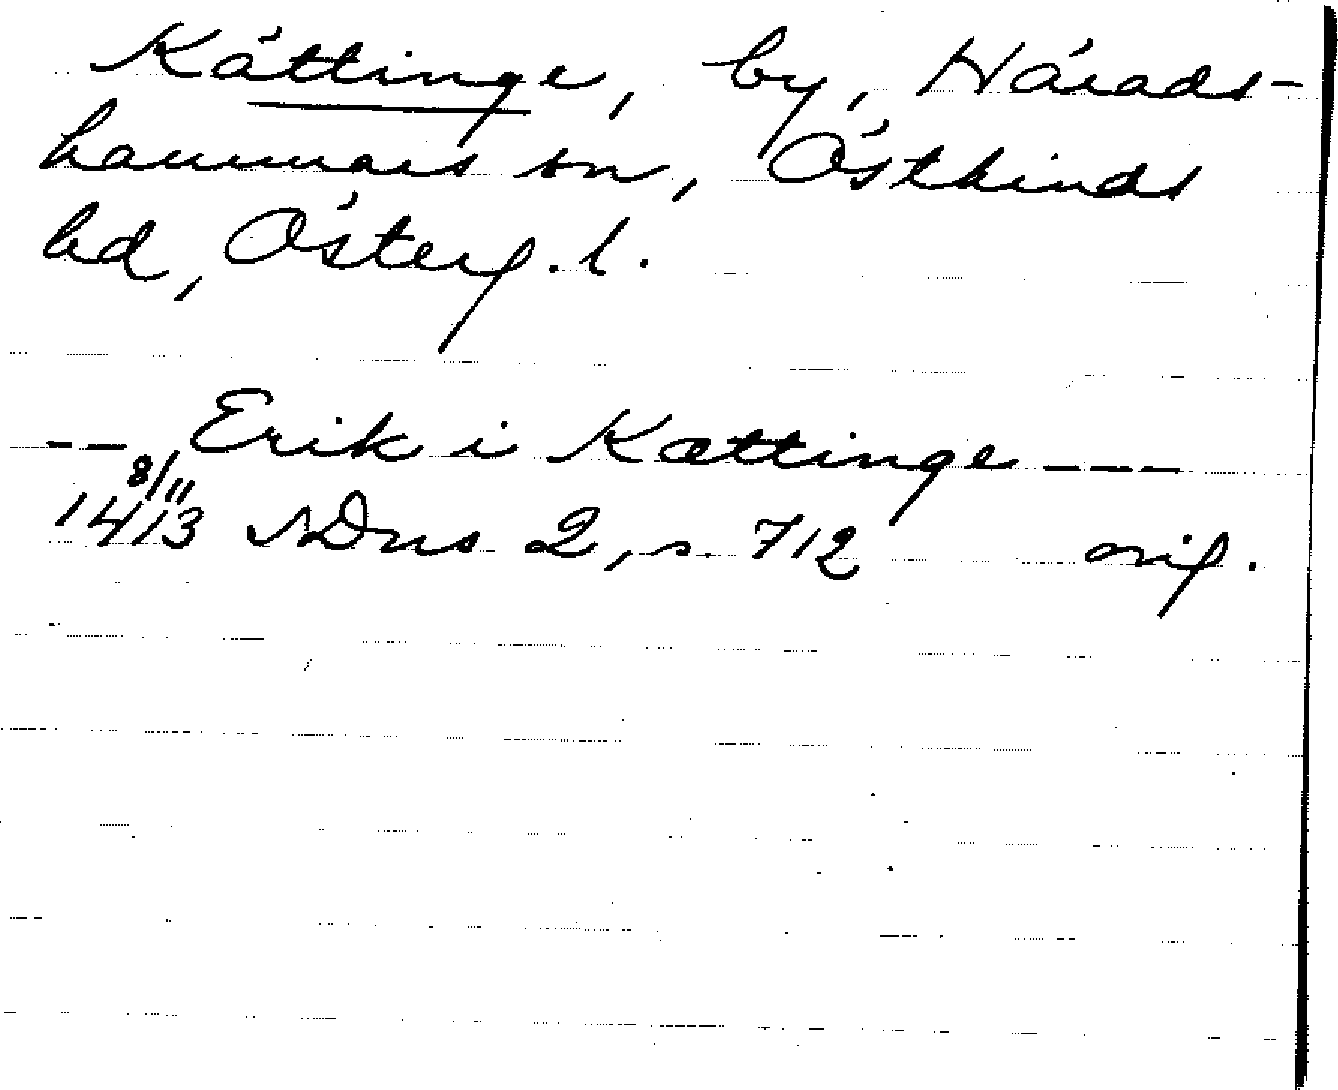 Kättinge, by, Härads-
hammars sn, Östkinds
hd, Österg. l.
-- Erik i Kættinge ---
8/11
1413 SDns 2, s. 712 orig.